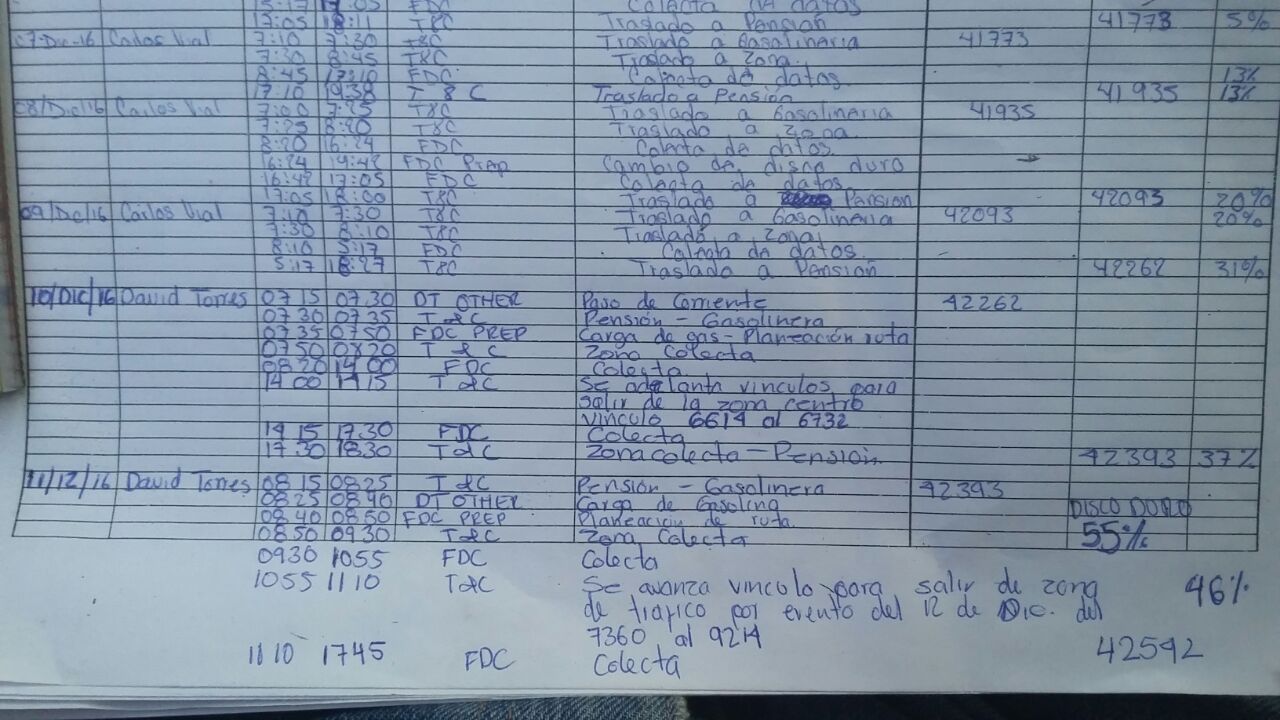 15:17 17:05 FDC Colecta de datos
17:05 18:11 T&C Traslado a Pensión 41773 5%
07-Dic-16 Carlos Vial 7:10 7:30 T&C Traslado a Gasolinería 41773
7:30 8:45 T&C Traslado a Zona
8:45 17:10 FDC Colecta de datos 13%
17:10 19:38 T & C Traslado a Pensión 41935 13%
08/Dic/16 Carlos Vial 7:00 7:25 T&C Traslado a Gasolinería 41935
7:25 8:20 T&C Traslado a Zona
8:20 16:24 FDC Colecta de datos
16:24 FDC Prep Cambio de disco duro
16:42 17:05 FDC Colecta de datos
17:05 18:00 T&C Traslado a Pension 42093 20%
09/Dic/16 Carlos Vial 7:10 7:30 T&C Traslado a Gasolinería 42093 20%
7:30 8:10 T&C Traslado a Zona
8:10 5:17 FDC Colecta de datos
5:17 18:27 T&C Traslado a Pensión 42262 31%
10/DIC/16 David Torres 07 15 07.30 DT OTHER Paso de Corriente 42262
07 30 07 35 T&C Pensión - Gasolinera
07.35 07 50 FDC PREP Carga de gas - Planeación ruta
07 50 08 20 T & C Zona Colecta
08 20 14 00 FDC Colecta
14 00 14 15 T &C Se adelanta vinculos para
salir de la zona centro
vinculo 6614 al 6732
14 15 17.30 FDC Colecta
17.30 18.30 T &C Zona colecta - Pensión 42393 37%
11/12/16 David Torres 08 15 08 25 T &C Pensión - Gasolinera 42393
08 25 08 40 DT OTHER Carga de Gasolina DISCO DURO
08 40 08 50 FDC PREP Planeación de ruta
08 50 09 30 T&C Zona Colecta 55%
0930 1055 FDC Colecta
1055 1110 T&C Se avanza vinculo para salir de zona 46%
de trafico por evento del 12 de Dic. del
7360 al 9214
11 10 1745 FDC Colecta 42542